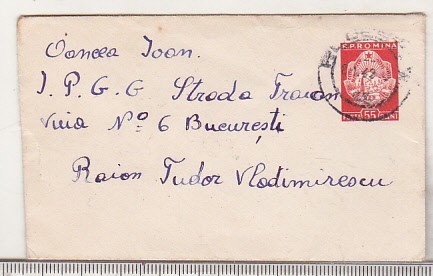 Oancea Ioan.
I. P. G. G Strada Traian
Vuia Nº 6 București
Raion Tudor Vladimirescu
R.P.ROMINA
55